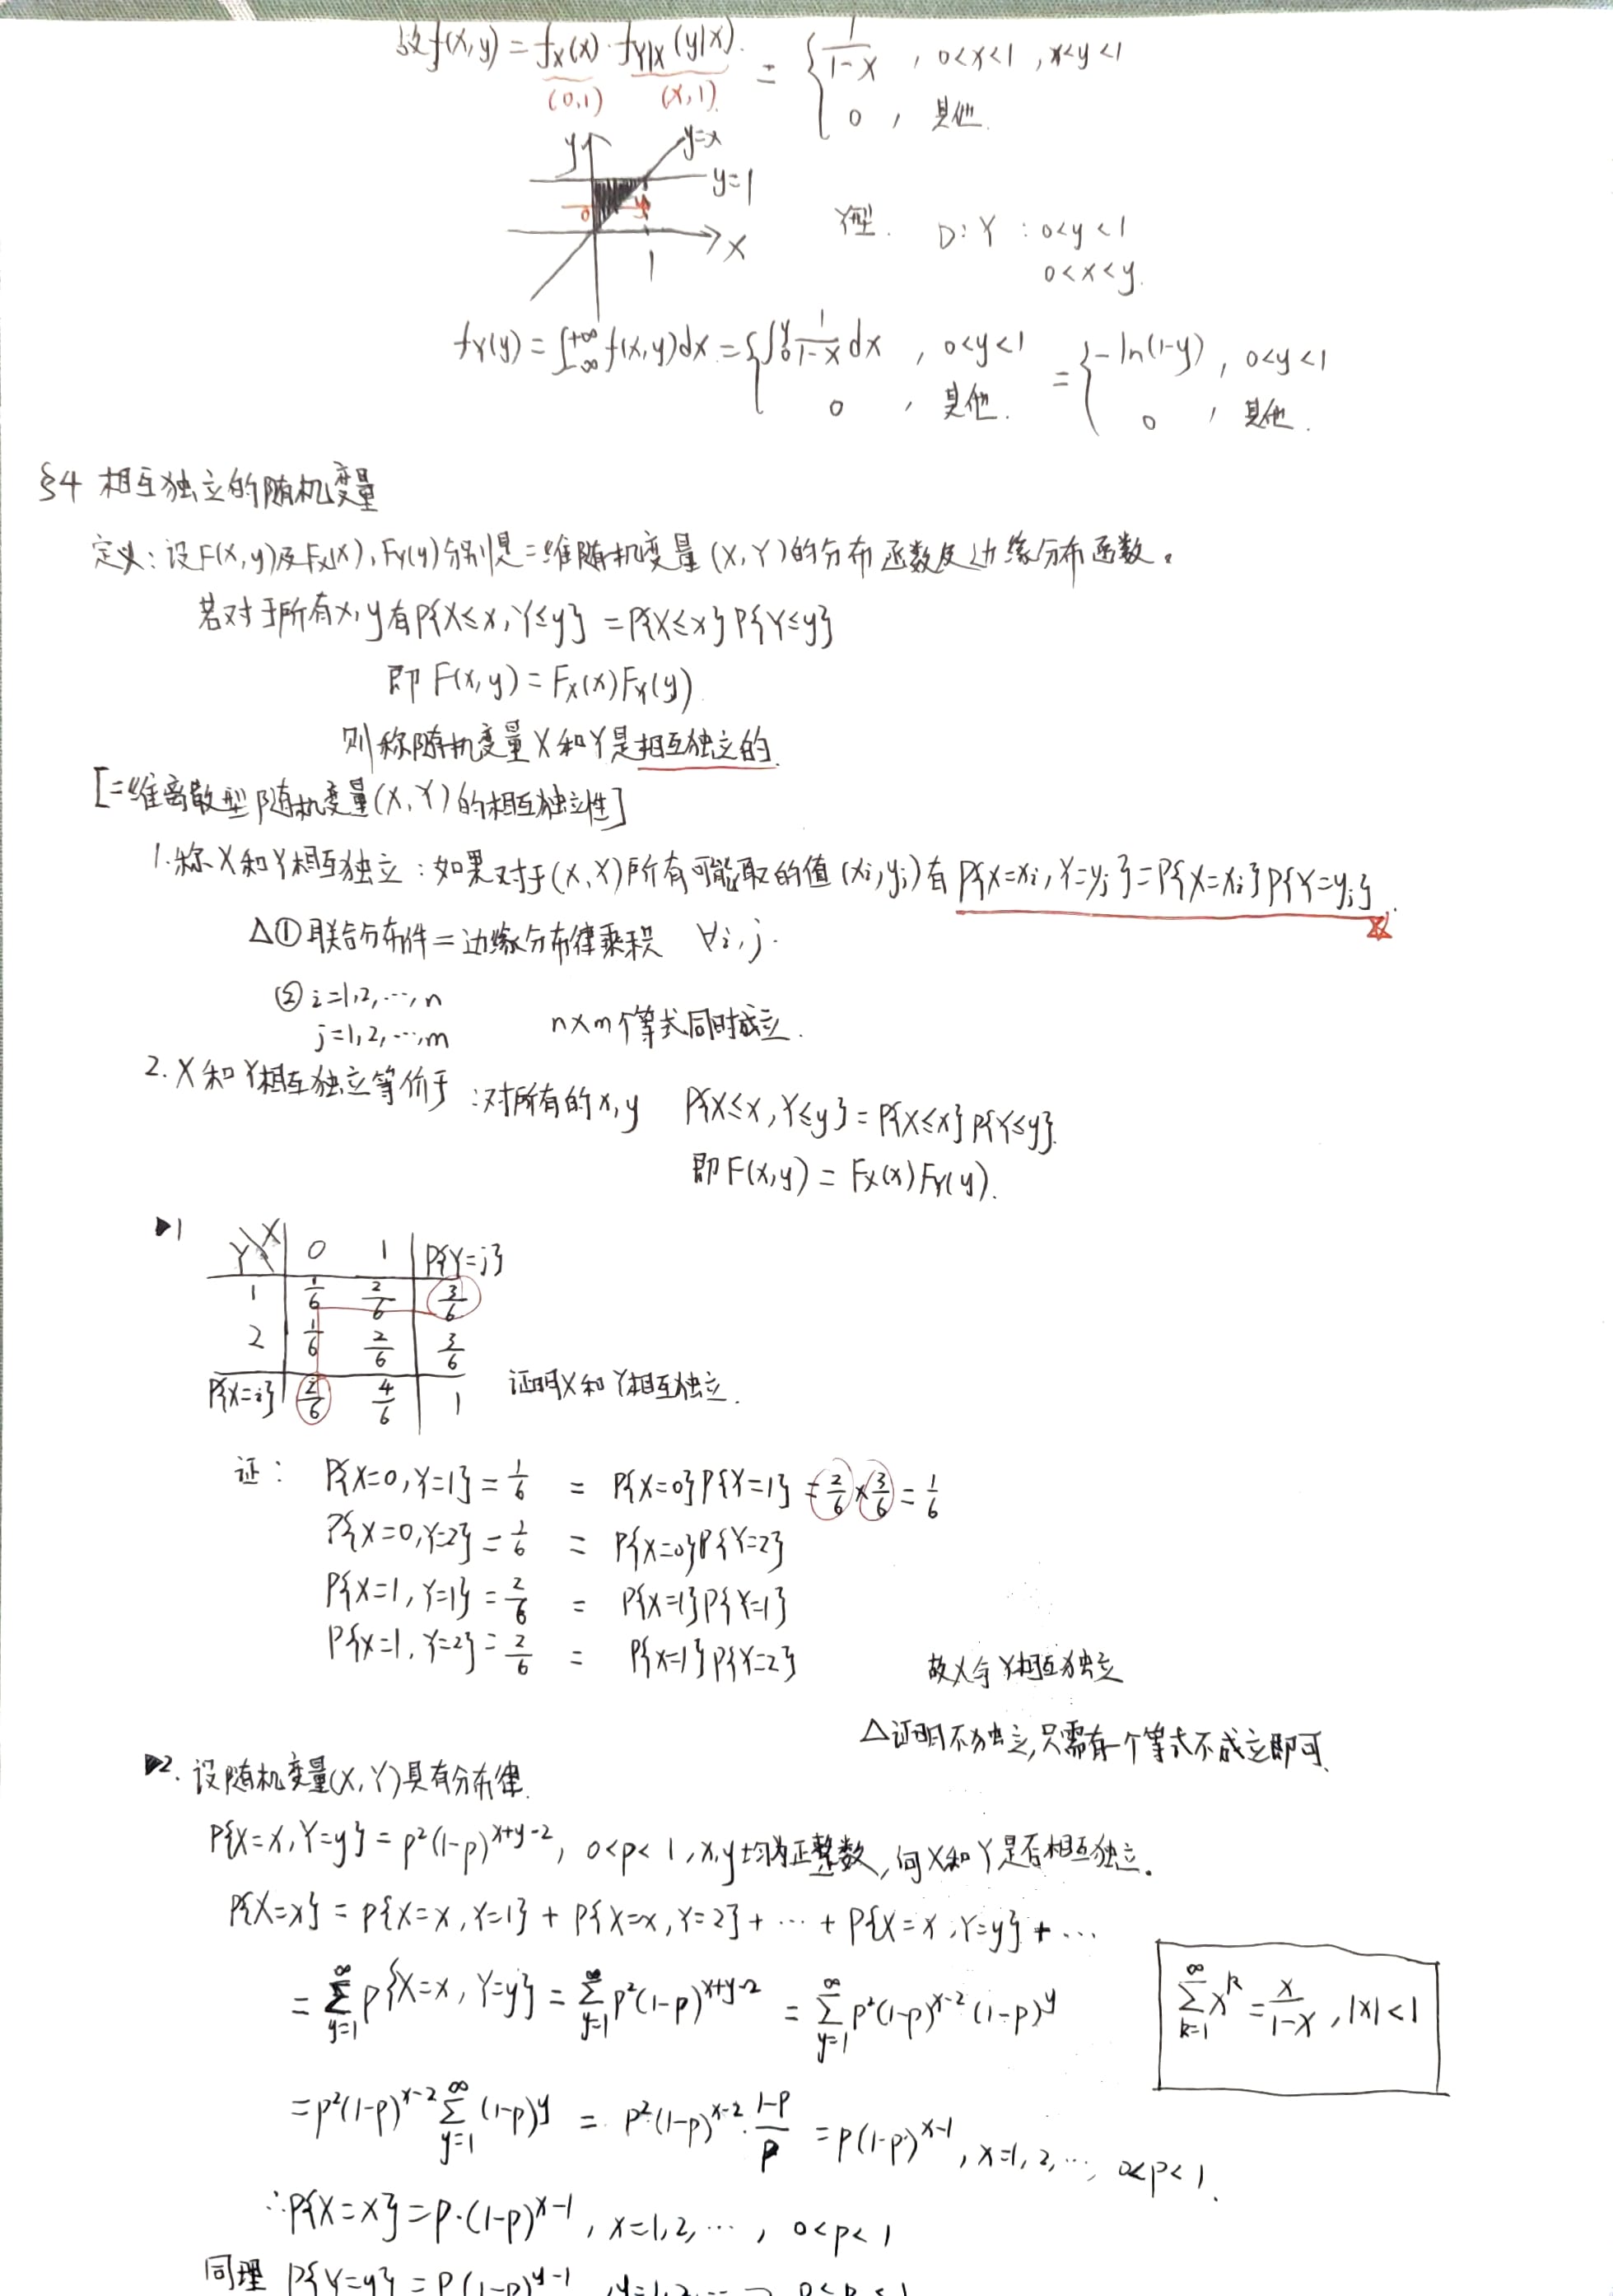 故f(x,y) = fX(x)·fY|X(y|x) = { 1/(1-x) , 0<x<1 , x<y<1
(0,1) (x,1)
0 , 其他.
y y=x
y=1
0 y
x
1
Y型. D: Y : 0<y<1
0<x<y.
fY(y) = ∫_{-∞}^{+∞} f(x,y)dx = { ∫_0^y 1/(1-x) dx , 0<y<1 = { -ln(1-y) , 0<y<1
0 , 其他. 0 , 其他.
§4 相互独立的随机变量
定义: 设F(x,y)及Fx(x), FY(y)分别是二维随机变量 (X,Y)的分布函数及边缘分布函数。
若对于所有x,y有P{X≤x,Y≤y} = P{X≤x}P{Y≤y}
即 F(x,y) = FX(x)FY(y)
则称随机变量X和Y是相互独立的.
[二维离散型随机变量(X,Y)的相互独立性]
1. 称X和Y相互独立: 如果对于(X,Y)所有可能取的值 (xi,yj)有 P{X=xi,Y=yj}=P{X=xi}P{Y=yj}. ☆
△①联合分布件=边缘分布律乘积 ∀i,j.
② i=1,2,…,n
j=1,2,…,m n×m个等式同时成立.
2. X和Y相互独立等价于 :对所有的x,y P{X≤x,Y≤y}=P{X≤x}P{Y≤y}.
即F(x,y) = FX(x)FY(y).
▶1
Y\X 0 1 P{Y=j}
1 1/6 2/6 3/6
2 1/6 2/6 3/6
P{X=i} 2/6 4/6 1 证明X和Y相互独立.
证: P{X=0,Y=1} = 1/6 = P{X=0}P{Y=1} = 2/6 × 3/6 = 1/6
P{X=0,Y=2} = 1/6 = P{X=0}P{Y=2}
P{X=1,Y=1} = 2/6 = P{X=1}P{Y=1}
P{X=1,Y=2} = 2/6 = P{X=1}P{Y=2} 故X与Y相互独立
△证明不独立,只需有一个等式不成立即可.
▶2. 设随机变量(X,Y)具有分布律.
P{X=x,Y=y} = p²(1-p)^{x+y-2}, 0<p<1,x,y均为正整数,问X和Y是否相互独立.
P{X=x} = P{X=x,Y=1} + P{X=x,Y=2} + … + P{X=x,Y=y} + …
= Σ_{y=1}^∞ P{X=x,Y=y} = Σ_{y=1}^∞ p²(1-p)^{x+y-2} = Σ_{y=1}^∞ p²(1-p)^{x-2} (1-p)^y
Σ_{k=1}^∞ x^k = x/(1-x) , |x|<1
= p²(1-p)^{x-2} Σ_{y=1}^∞ (1-p)^y = p²·(1-p)^{x-2}·(1-p)/p = p(1-p)^{x-1} , x=1,2,…, 0<p<1.
∴P{X=x} = p·(1-p)^{x-1} , x=1,2,… , 0<p<1
同理 P{Y=y} = p(1-p)^{y-1}